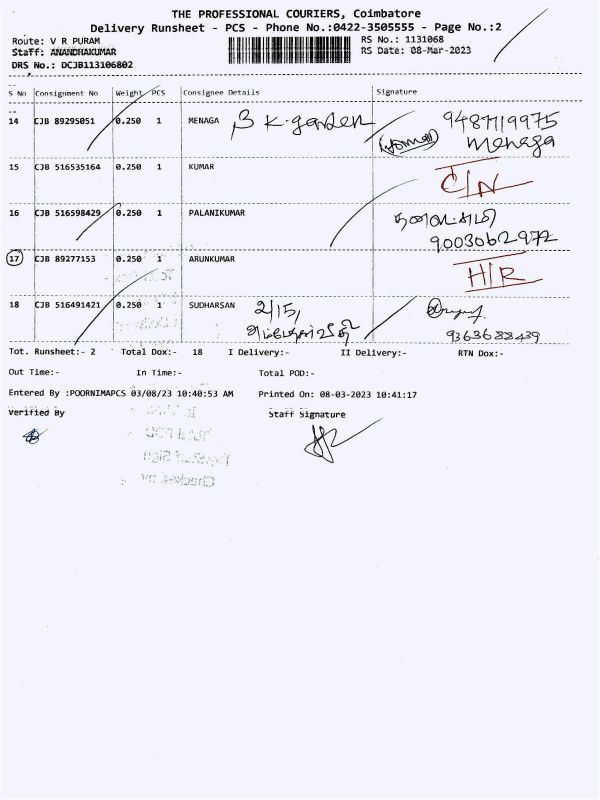 THE PROFESSIONAL COURIERS, Coimbatore
Delivery Runsheet - PCS - Phone No.:0422-3505555 - Page No.:2
Route: V R PURAM
RS No.: 1131068
Staff: ANANDHAKUMAR
RS Date: 08-Mar-2023
DRS No.: DCJB113106802
S No Consignment No Weight PCS Consignee Details Signature
14 CJB 89295051 0.250 1 MENAGA B K. garden 9487119975
Menaga
15 CJB 516535164 0.250 1 KUMAR C/N
16 CJB 516598429 0.250 1 PALANIKUMAR
9003062972
17 CJB 89277153 0.250 1 ARUNKUMAR H/R
18 CJB 516491421 0.250 1 SUDHARSAN 2/15,
9363688439
Tot. Runsheet:- 2 Total Dox:- 18 I Delivery:- II Delivery:- RTN Dox:-
Out Time:- In Time:- Total POD:-
Entered By :POORNIMAPCS 03/08/23 10:40:53 AM Printed On: 08-03-2023 10:41:17
Verified By Staff Signature